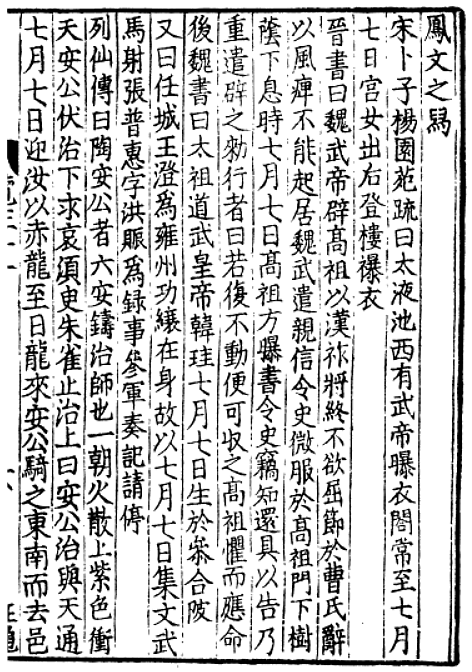 鳳文之舄
宋卜子楊園苑疏曰太液池西有武帝曝衣閣常至七月
七日宫女出后登樓㬥衣
晉書曰魏武帝辟髙祖以漢祚將終不欲屈節於曹氏辭
以風痺不能起居魏武遣親信令史微服於髙祖門下樹
蔭下息時七月七日髙祖方曝書令史竊知還具以告乃
重遣辟之勑行者曰若復不動便可収之髙祖懼而應命
後魏書曰太祖道武皇帝韓珪七月七日生於叅合陂
又曰任城王澄爲雍州功縗在身故以七月七日集文武
馬射張普惠字洪賑爲録事叅軍奏記請停
列仙傳曰陶安公者六安鑄治師也一朝火散上紫色衝
天安公伏治下求哀須吏朱雀止治上曰安公治與天通
七月七日迎汝以赤龍至日龍來安公騎之東南而去邑